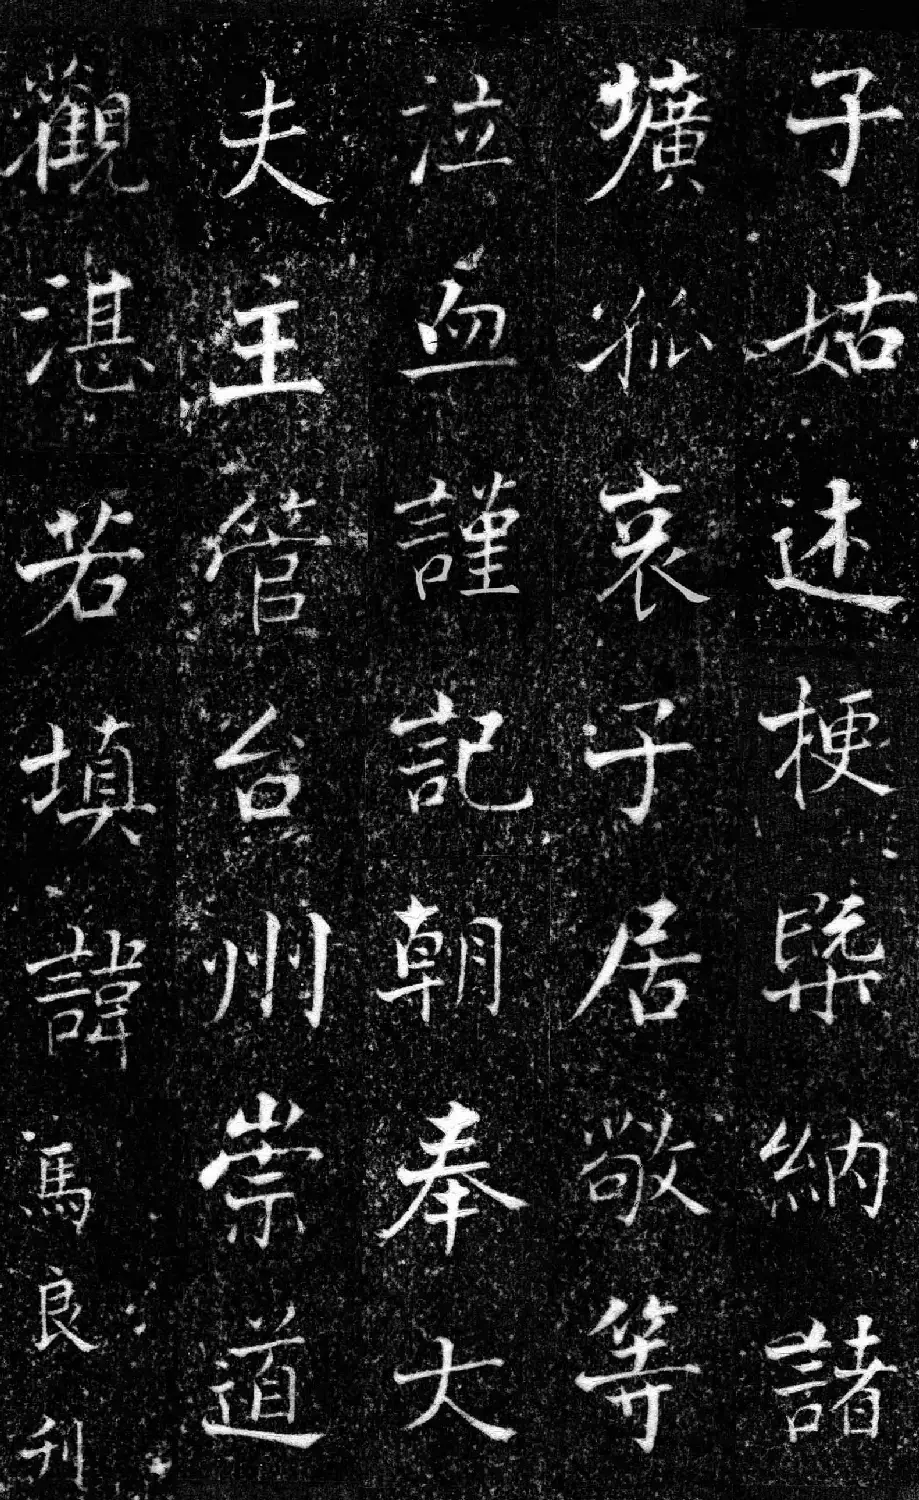 子姑述梗槩納諸
壙孤哀子居敬等
泣血謹記朝奉大
夫主管台州崇道
觀湛若填諱馬良刊